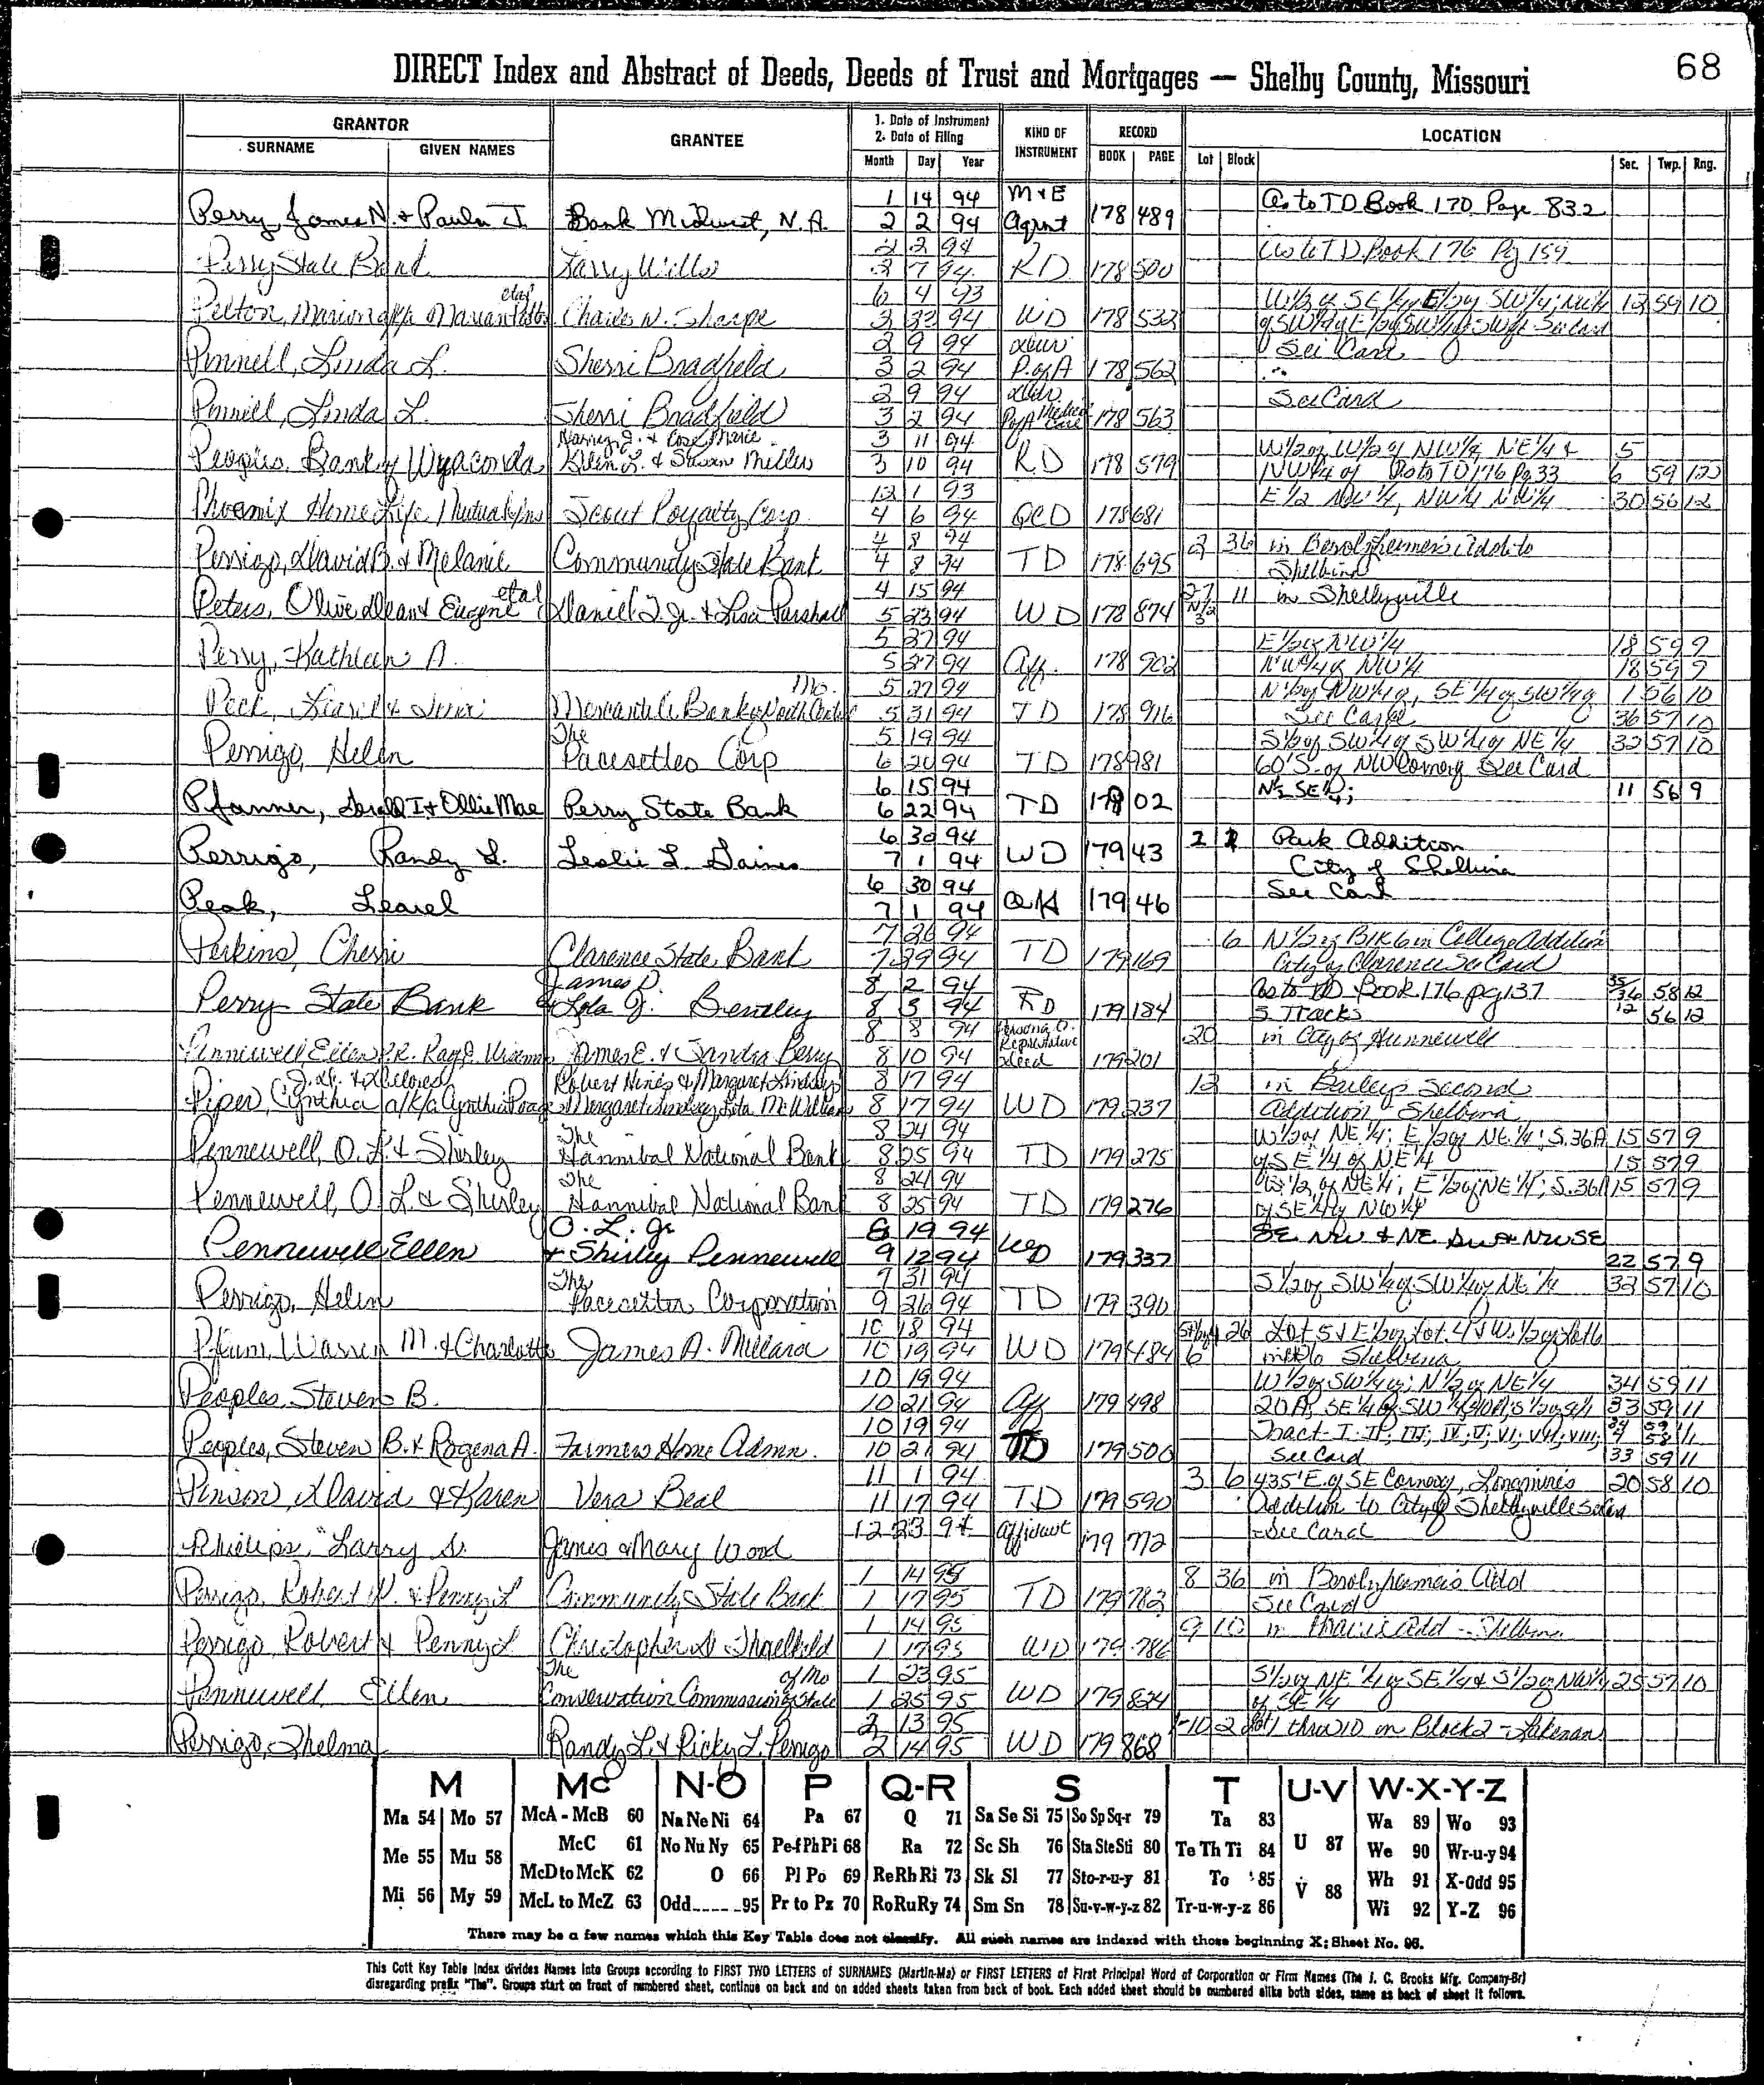 68
DIRECT Index and Abstract of Deeds, Deeds of Trust and Mortgages — Shelby County, Missouri
GRANTOR
SURNAME GIVEN NAMES
GRANTEE
1. Date of Instrument
2. Date of Filing
Month Day Year
KIND OF INSTRUMENT
RECORD
BOOK PAGE
LOCATION
Lot Block Sec. Twp. Rng.
1 14 94 M+E
Perry, James N. + Paula J. Bank Midwest, N.A. 2 2 94 Agmt 178 489 As to TD Book 170 Page 832
2 2 94 As to TD Book 176 Pg 159
Perry State Bank Larry Wills 2 7 94 RD 178 500
etal 6 4 93 W½ of SE¼, E½ of SW¼; NW¼ 12 59 10
Charles N. Sharpe WD 178 532 See Card
2 9 94 See Card
Pennell, Linda L. Sherri Bradfield 3 2 94 P. of A 178 562
2 9 94 See Card
Pennell, Linda L. Sherri Bradfield 3 2 94 Medical Care 178 563
3 11 94 W½ of W½ of NW¼, NE¼ & 5
Peoples Bank of Wyaconda & Susan Miller 3 10 94 RD 178 579 NW¼ of As to TD 176 Pg 33 6 59 12
12 1 93 E½ NW¼, NW¼ NW¼ 30 56 12
Phoenix Home Life Mutual Ins Scout Royalty Corp. 4 6 94 QCD 178 681
4 8 94 2 36 in Berolzheimer's Add to
Perrigo, David B. & Melanie Community State Bank 4 8 94 TD 178 695 Shelbina
etal 4 15 94 27 11 in Shelbyville
Peters, Olive Dean & Eugene Daniel J. Jr. & Lisa Parshall 5 23 94 WD 178 874
5 27 94 E½ of NW¼ 18 59 9
Perry, Kathleen A. 5 27 94 Aff. 178 902 NW¼ of NW¼ 18 59 9
Mo. 5 27 94 N½ of NW¼ of, SE¼ of SW¼ of 1 56 10
Mercantile Bank of North Central 5 31 94 TD 178 916 See Card 36 57 10
The 5 19 94 S½ of SW¼ of SW¼ of NE¼ 32 57 10
Perrigo, Helen Pacesetter Corp 6 20 94 TD 178 981 60'S. of NW Corner of See Card
6 15 94 N½ SE¼; 11 56 9
Pfanner, Gerald I. + Ollie Mae Perry State Bank 6 22 94 TD 179 02
6 30 94 2 Park Addition
Perrigo, Randy L. Leslie L. Gaines 7 1 94 WD 179 43 City of Shelbina
6 30 94 See Card
Peak, Learel 7 1 94 179 46
7 26 94 6 N½ of Blk 6 in College Addition
Perkins, Cherri Clarence State Bank 7 29 94 TD 179 169 City of Clarence See Card
James D. 8 2 94 As to TD Book 176 pg 137 35 36 58 12
Perry State Bank & Lola J. Bentley 8 5 94 RD 179 184 3 Tracks 12 56 12
8 8 94 Personal Representative 20 in City of Hunnewell
Pennewell Ellen P.R. James E. & Sandra Berry 8 10 94 Deed 179 201
J. W. & Delores Robert Hines & Margaret Lindsley 8 17 94 12 in Bailey's Second
Piper, Cynthia a/k/a Cynthia 8 17 94 WD 179 237 Addition - Shelbina
The 8 24 94 W½ of NE¼; E½ of NE¼; S. 36A 15 57 9
Pennewell, O. L. & Shirley Hannibal National Bank 8 25 94 TD 179 275 of SE¼ of NE¼ 15 57 9
The 8 24 94 W½ of NE¼; E½ of NE¼; S. 36A 15 57 9
Pennewell, O. L. & Shirley Hannibal National Bank 8 25 94 TD 179 276 of SE¼ of NW¼
O. L. Jr. 8 19 94 SE NW & NE SW & NWSE
Pennewell Ellen + Shirley Pennewell 9 12 94 WD 179 337 22 57 9
The 7 31 94 S½ of SW¼ of SW¼ of NE¼ 32 57 10
Perrigo, Helen Pacesetter Corporation 9 26 94 TD 179 390
10 18 94 26 Lot 5 & E½ of Lot 4 & W½ of Lot 6
Warren M. & Charlotte James A. Millard 10 19 94 WD 179 484 6 Shelbina
10 19 94 W½ of SW¼ of; N½ of NE¼ 34 59 11
Peoples, Steven B. 10 21 94 Aff 179 498 20A, SE¼ of SW¼ 33 59 11
10 19 94 Tract I, II, III, IV, V, VI, VII, VIII;
Peoples, Steven B. & Rogena A. Farmers Home Admn. 10 21 94 TD 179 500 See Card 33 59 11
11 1 94 3 6 435'E. of SE Corner of, 20 58 10
Pinson, David & Karen Vera Beal 11 17 94 TD 179 590 Addition to City of Shelbyville See Card
12 23 94 Affidavit See Card
Phillips, Larry James & Mary Wood 179 772
1 14 95 8 36 in Berolzheimer's Add
Perrigo, Robert W. & Penny L Community State Bank 1 17 95 TD 179 782 See Card
1 14 95 9 10 in Prairie Add - Shelbina
Perrigo, Robert & Penny L Christopher D. 1 17 95 WD 179 786
The of Mo 1 23 95 S½ of NE¼ of SE¼ & S½ of NW¼ 25 57 10
Pennewell, Ellen Conservation Commission of State 1 25 95 WD 179 824 of SE¼
2 13 95 1-10 2 Lot 1 thru 10 in Block 2 - Lakenan
Perrigo, Thelma Randy L. & Ricky L. Perrigo 2 14 95 WD 179 868
M Mc N-O P Q-R S T U-V W-X-Y-Z
Ma 54 Mo 57 McA - McB 60 Na Ne Ni 64 Pa 67 Q 71 Sa Se Si 75 So Sp Sq-r 79 Ta 83 U 87 Wa 89 Wo 93
Me 55 Mu 58 McC 61 No Nu Ny 65 Pe-f Ph Pi 68 Ra 72 Sc Sh 76 Sta Ste Sti 80 Te Th Ti 84 V 88 We 90 Wr-u-y 94
McD to McK 62 O 66 Pl Po 69 Re Rh Ri 73 Sk Sl 77 Sto-r-u-y 81 To 85 Wh 91 X-Odd 95
Mi 56 My 59 McL to McZ 63 Odd 95 Pr to Pz 70 Ro Ru Ry 74 Sm Sn 78 Su-v-w-y-z 82 Tr-u-w-y-z 86 Wi 92 Y-Z 96
There may be a few names which this Key Table does not classify. All such names are indexed with those beginning X; Sheet No. 96.
This Cott Key Table Index divides Names into Groups according to FIRST TWO LETTERS of SURNAMES (Martin-Ma) or FIRST LETTERS of First Principal Word of Corporation or Firm Names (The J. C. Brooks Mfg. Company-Br)
disregarding prefix "The". Groups start on front of numbered sheet, continue on back and on added sheets taken from back of book. Each added sheet should be numbered alike both sides, same as back of sheet it follows.